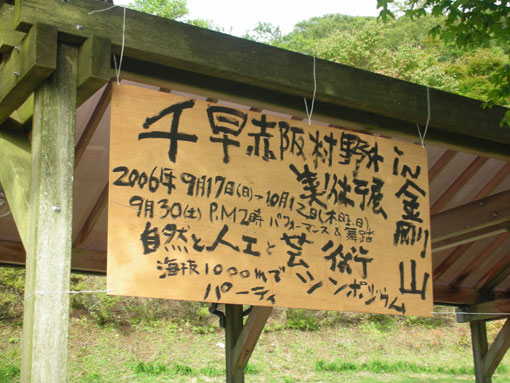 千早赤阪村野外
美術展
in金剛山
2006年9月17日(日)→10月12日(木曜日)
9月30(土)P.M2時パフォーマンス&舞踏
自然と人工と芸術
シンポジウム
海抜1000mで
パーティ